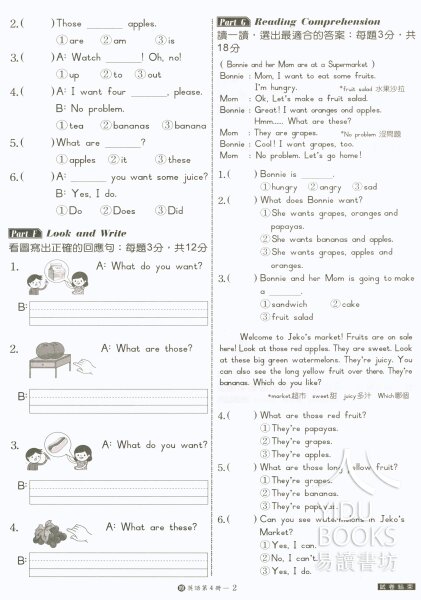 2.(　　) Those ______ apples.
①are ②am ③is
3.(　　) A: Watch ______! Oh, no!
①up ②to ③out
4.(　　) A: I want four ______, please.
B: No problem.
①tea ②bananas ③banana
5.(　　) What are ______?
①apples ②it ③these
6.(　　) A: ______ you want some juice?
B: Yes, I do.
①Do ②Does ③Did
Part F Look and Write
看圖寫出正確的回應句：每題3分，共12分
1. A: What do you want?
B:
2. A: What are those?
B:
3. A: What do you want?
B:
4. A: What are these?
B:
Part G Reading Comprehension
讀一讀，選出最適合的答案：每題3分，共
18分
( Bonnie and her Mom are at a Supermarket )
Bonnie : Mom, I want to eat some fruits.
I'm hungry. *fruit salad 水果沙拉
Mom : Ok, Let's make a fruit salad.
Bonnie : Great! I want oranges and apples.
Hmm..... What are these?
Mom : They are grapes. *No problem 沒問題
Bonnie : Cool! I want grapes, too.
Mom : No problem. Let's go home!
1.(　　) Bonnie is ______.
①hungry ②angry ③sad
2.(　　) What does Bonnie want?
①She wants grapes, oranges and
papayas.
②She wants bananas and apples.
③She wants grapes, apples and
oranges.
3.(　　) Bonnie and her Mom is going to make
a ______.
①sandwich ②cake
③fruit salad
Welcome to Jeko's market! Fruits are on sale
here! Look at those red apples. They are sweet. Look
at these big green watermelons. They're juicy. You
can also see the long yellow fruit over there. They're
bananas. Which do you like?
*market超市 sweet甜 juicy多汁 Which哪個
4.(　　) What are those red fruit?
①They're papayas.
②They're grapes.
③They're apples.
5.(　　) What are those long yellow fruit?
①They're grapes.
②They're bananas.
③They're papayas.
6.(　　) Can you see watermelons in Jeko's
Market?
①Yes, I can.
②No, I can't.
③Yes, I do.
YIDU
BOOKS
易讀書坊
英語第4冊—2
試卷結束